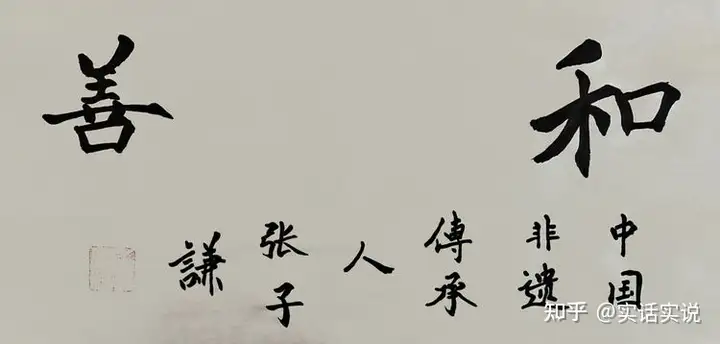 和善
中国
非遗
傳承
人
张子
謙
知乎 @实话实说